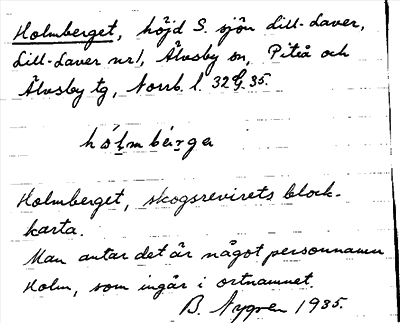 Holmberget, höjd S. sjön Lill-Laver,
Lill-Laver nr 1, Älvsby sn, Piteå och
Älvsby tg, Norrb. l. 32 G 35.
hólmbérgɘ
Holmberget, skogsrevirets block-
karta.
Man antar det är något personnamn
Holm, som ingår i ortnamnet.
B. Nygren 1935.